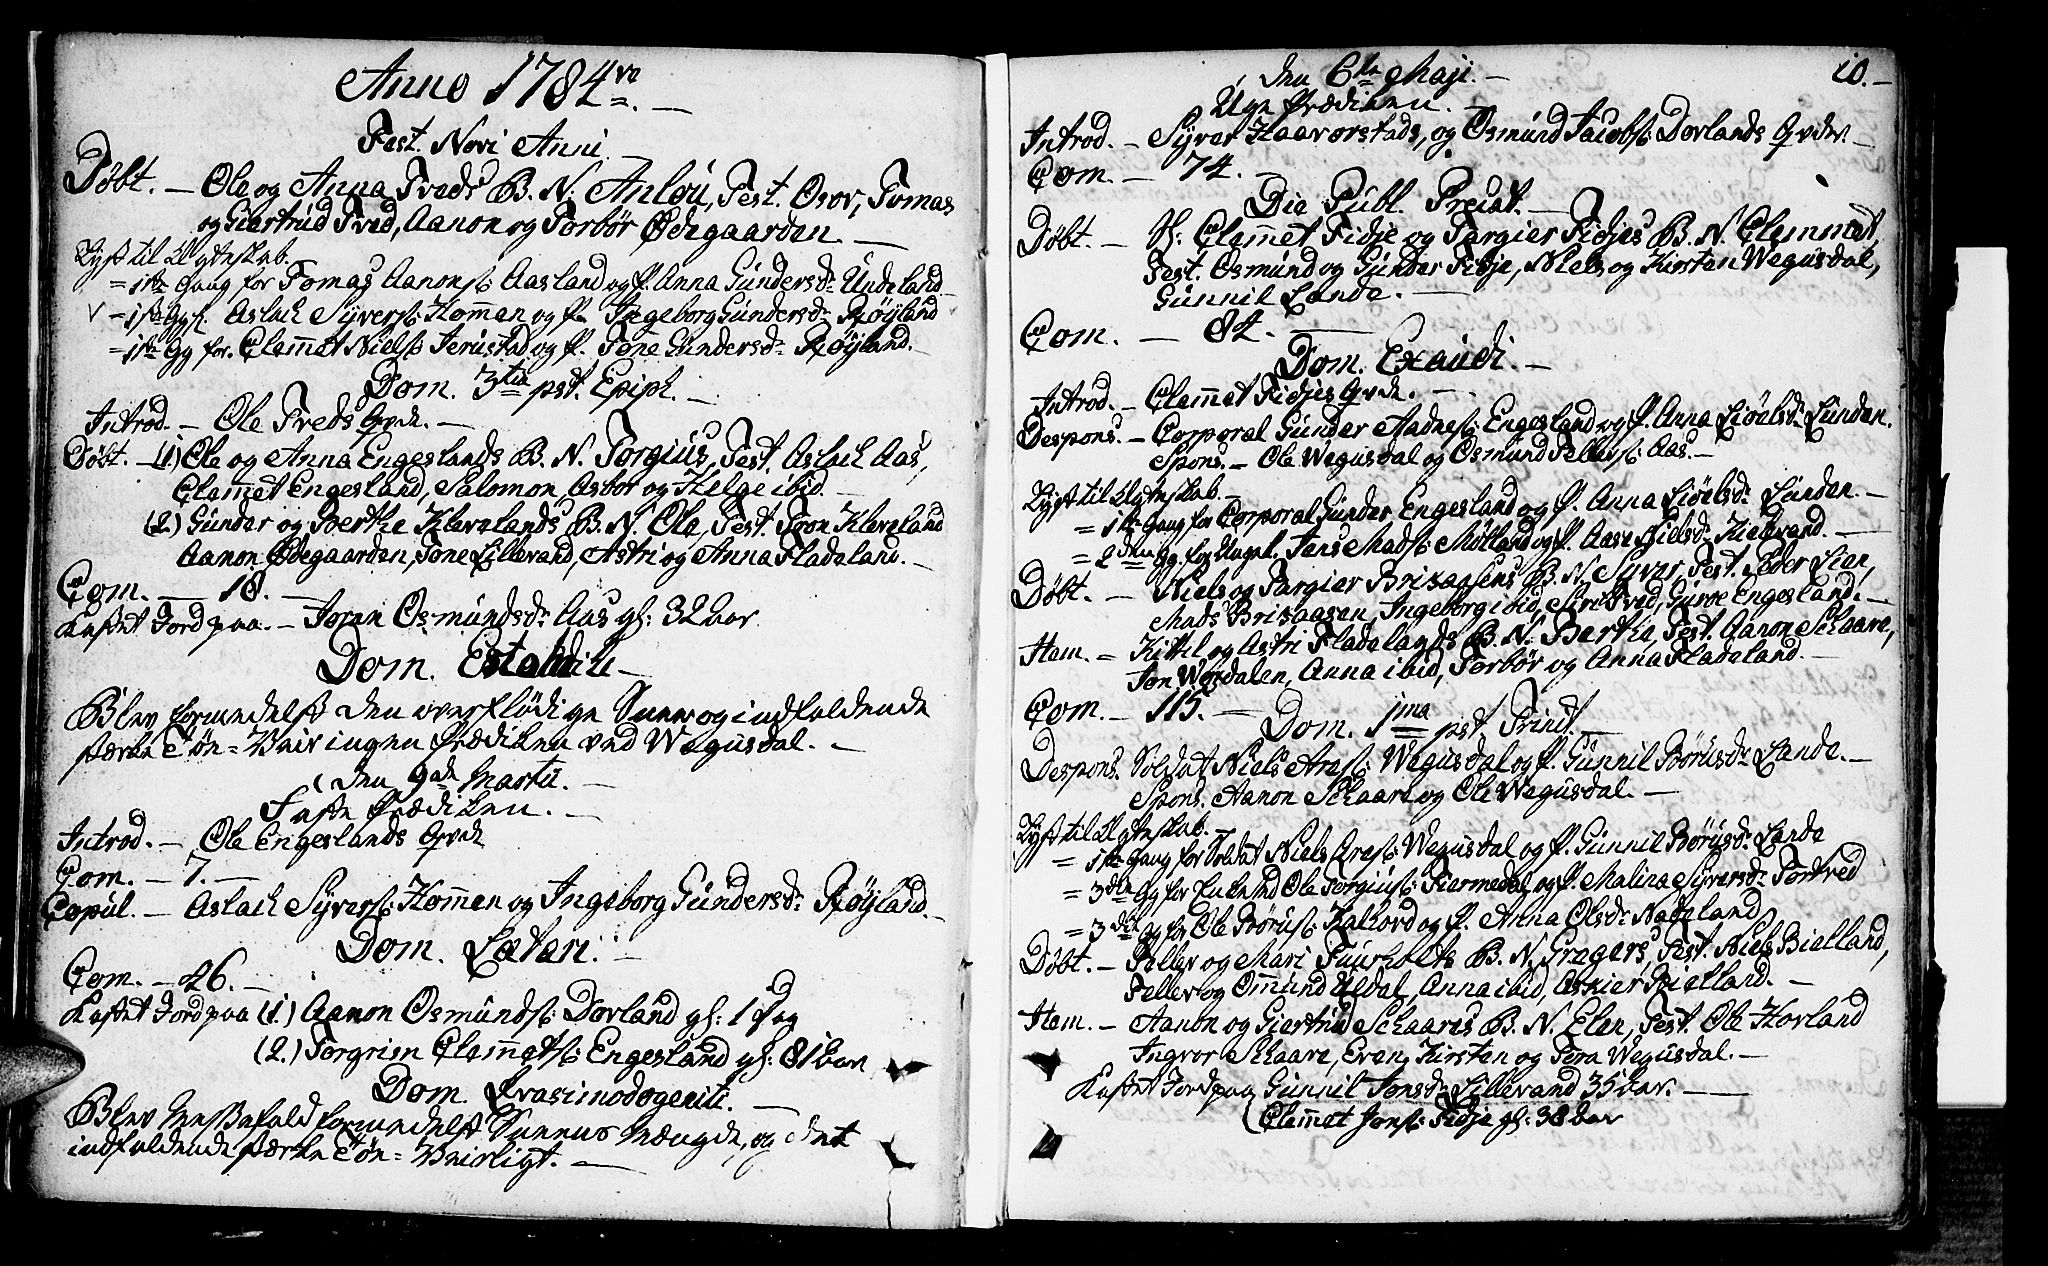 Anno 1784 ve
Fest. Novi Anni
Döbt. – Ole og Anna Tveds B. N. Anlou, Test. Osov, Tomas
og Giertrud Tved, Aanon og Torbör Ødegaarden. –
Lyst til Ægteskab.
= 1ste Gang for Tomas Aanons: Aasland og P. Anna Gundersd: Uudeland
– 1ste Gg f: Aslach Syvers: Hommen og P. Ingeborg Gundersd: Röyland
= 1ste Gg for Clemmet Niels: Jerustad og P. Tone Gundersd: Röyland. –
Dom. 3tia pst. Epiph. –
Introd. – Ole Tveds Qvde. –
Döbt. – (1.) Ole og Anna Engeslands B. N. Torgius, Test. Aslach Aas,
Clemmet Engesland, Salomon, Asbör og Helge ibid. –
(2.) Gunder og Berthe Klevelands B. N. Ole, Test. Tron Kleveland
Aanon Ødegaarden, Tone Lillevand, Astri og Anna Fladeland. –
Com. – 18. –
Kastet Jord paa. – Joran Osmundsd: Aas gl: 32 Aar.
Dom. Estomihi –
Blev formedelst den overflödige Snee og indfaldende
stærke Töe-Veir ingen Prædiken ved Wegusdal. –
den 9de Martii. –
Faste Prædiken. –
Introd. – Ole Engeslands Qvde
Com. – 7. –
Copul. – Aslach Syvers: Hommen og Ingeborg Gundersd: Röyland. –
Dom. Lætari.
Com. – 46. –
Kastet Jord paa (1.) Aanon Osmunds: Dovland gl: 1 Dag
(2.) Torgrim Clemmets: Engesland gl: 81 Aar
Dom. Qvasimodogeniti. –
Blev Messefald formedelst Sneens Mængde, og det
indfaldende stærke Töe-Veirligt. –
10. –
den 6te Maji. –
Uge Prædiken. –
Introd. – Syver Haavorstads, og Osmund Jacobs: Dovlands Qvder. –
Com. – 74. –
Die Publ. Precat. –
Döbt. – Hr: Clemmet Fidje og Targier Fidjes B. N. Clemmet,
Test. Osmund og Gunder Fidje, Niels og Kirsten Wegusdal,
Gunnil Lande. –
Com. – 84. –
Dom. Exaudi. –
Introd. – Clemmet Fidjes Qvde. –
Despons. – Corporal Gunder Aadnes: Engesland og P. Anna Liöelsd: Lunden.
Spons. – Ole Wegusdal og Osmund Tellefs: Aas. –
Lyst til Ægteskab. –
= 1ste Gang for Corporal Gunder Engesland og P. Anna Liöelsd: Lunden. –
= 2den Gg for Ungk. Jens Mads: Mölland og P. Aase Nielsd: Kiedevand. –
Döbt. – Niels og Targier Brisaasens B. N. Syver, Test. Peder Lien,
Mads Brisaasen, Ingeborg ibid, Siri Tved, Guroe Engesland. –
Item. – Kittil og Astri Fladelands B. N. Berthe, Test. Aanon Schaare,
Jon Wordalen, Anna ibid, Torbör og Anna Fladeland. –
Com. – 115. –
Dom. 1ma pst. Trinit. –
Despons. Soldat Niels Ares: Wegusdal og P. Gunnil Börusd: Lande. –
Spons. Aanon Schaare og Ole Wegusdal. –
Lyst til Ægteskab. –
= 1ste Gang for Soldat Niels Ares: Wegusdal og P. Gunnil Börusd: Lande
= 3die Gg for Enkemd Ole Torgius: Tiermedal og P. Malina Syversd: Tortved
= 3die Gg for Ole Börus: Kalvord og P. Anna Olsd: Nateland
Döbt. – Tellev og Mari Fuurholts B. N. Gregers, Test. Niels Bielland,
Tellev og Ommund Uldal, Anna ibid, Askier Bielland. –
Item. – Aanon og Giertrud Schaares B. N. Elen, Test. Ole Hovland
Ingvor Schaare, Even, Kirsten og Tora Wegusdal. –
Kastet Jord paa Gunnil Jonsd: Lillevand 35 Aar. –
Clemmet Jons: Fidje gl: 38 Aar